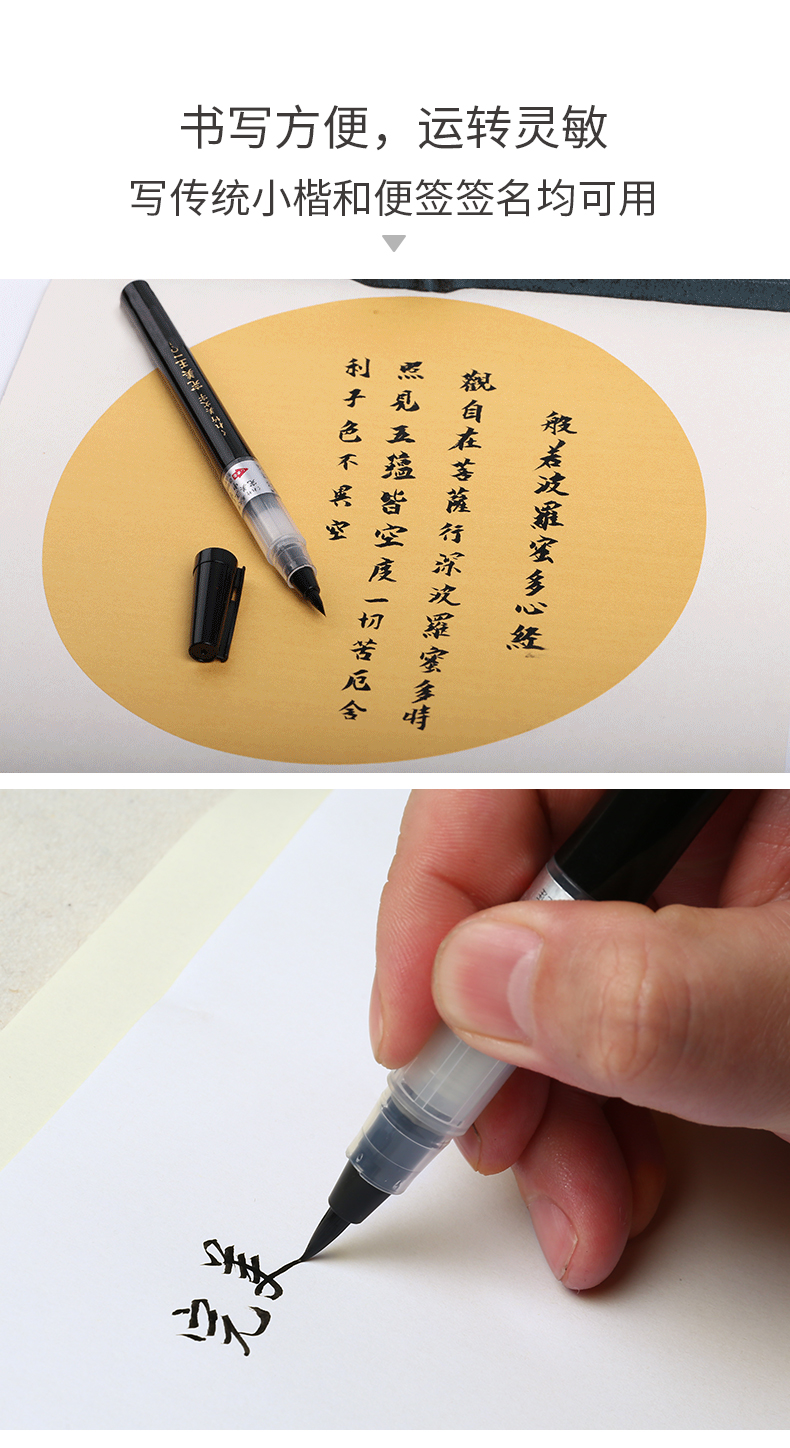 书写方便，运转灵敏
写传统小楷和便签签名均可用
般若波羅蜜多心経
觀自在菩薩行深波羅蜜多時
照見五蘊皆空度一切苦厄舍
利子色不異空
美文字 完美王
完美